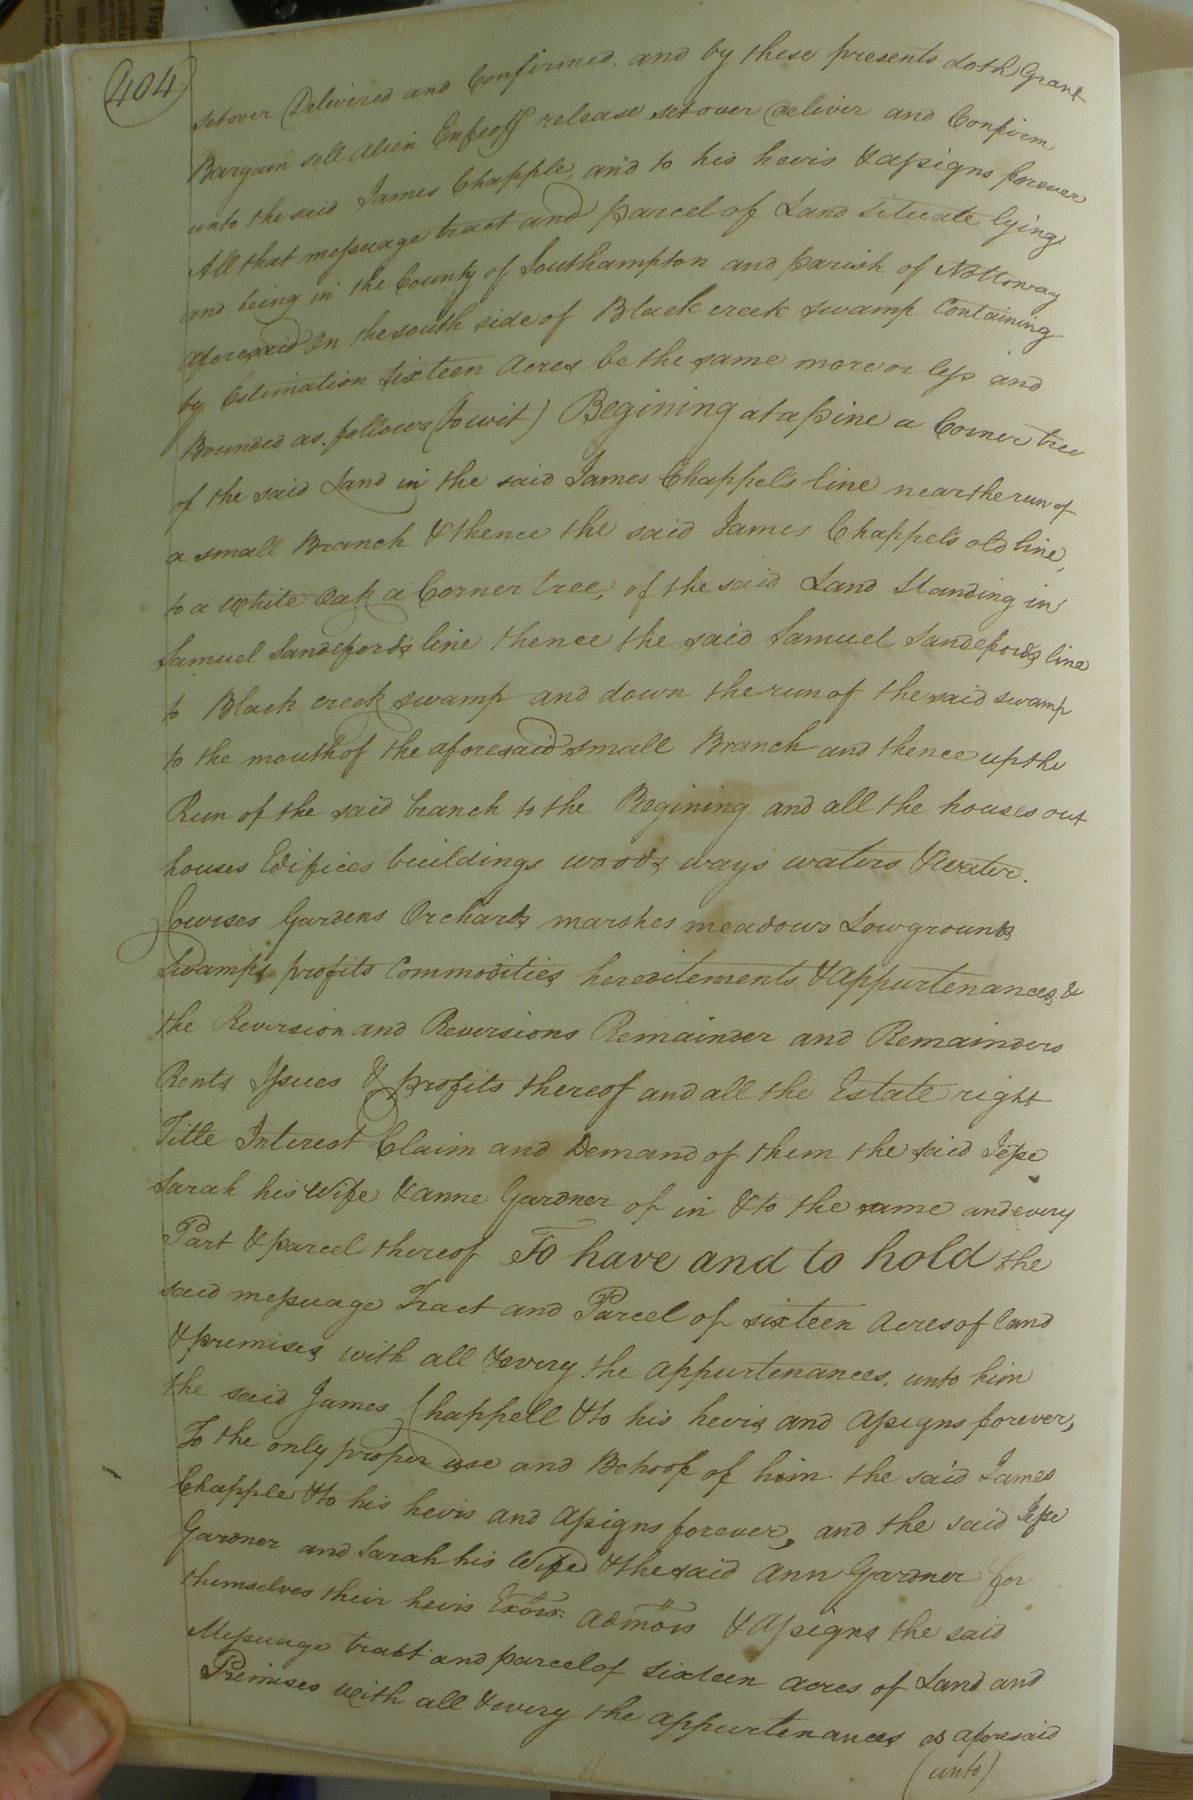 404
setover Delivered and Confirmed. and by these presents doth Grant
Bargain sell alien Enfeoff release setover Deliver and Confirm
unto the said James Chapple, and to his heirs & assigns forever
All that messuage tract and parcel of Land situate lying
and being in the County of Southampton and parish of Nottoway
aforesaid On the south side of Black creek swamp Containing
by Estimation sixteen Acres be the same more or less and
Bounded as follows (towit) Begining at a pine a Corner tree
of the said Land in the said James Chappels line near the run of
a small Branch & thence the said James Chappels old line,
to a White Oak a Corner tree, of the said Land Standing in
Samuel Sandefords line thence the said Samuel Sandefords line
to Black creek swamp and down the run of the said swamp
to the mouth of the aforesaid small Branch and thence up the
Run of the said branch to the Begining and all the houses out
houses Edifices buildings woods ways waters & water.
Courses Gardens Orchards marshes meadows Lowgrounds
Swamps profits Commodities hereditements & Appurtenances &
the Reversion and Reversions Remainder and Remainders
Rents Issues & profits thereof and all the Estate right
Title Interest Claim and Demand of them the said Jesse
Sarah his Wife & anne Gardner of in & to the same and every
Part & parcel thereof To have and to hold the
said messuage Tract and Parcel of sixteen Acres of land
& premises with all & every the appurtenances, unto him
the said James Chappell & to his heirs and Assigns forever,
To the only proper use and Behoof of him the said James
Chapple & to his heirs and Assigns forever, and the said Jesse
Gardner and Sarah his Wife & the said Ann Gardner for
themselves their heirs Exors: admors & Assigns the said
Messuage tract and parcel of sixteen acres of Land and
Premises with all & every the appurtenances as aforesaid
(unto)